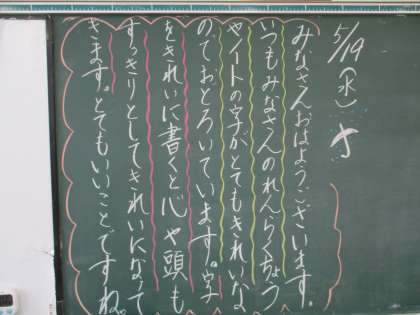 5/19（水）
みなさんおはようございます。
いつもみなさんのれんらくちょう
やノートの字がとてもきれいな
のでおどろいています。字
をきれいに書くと心や頭も
すっきりとしてきれいになって
きます。とてもいいことですね。